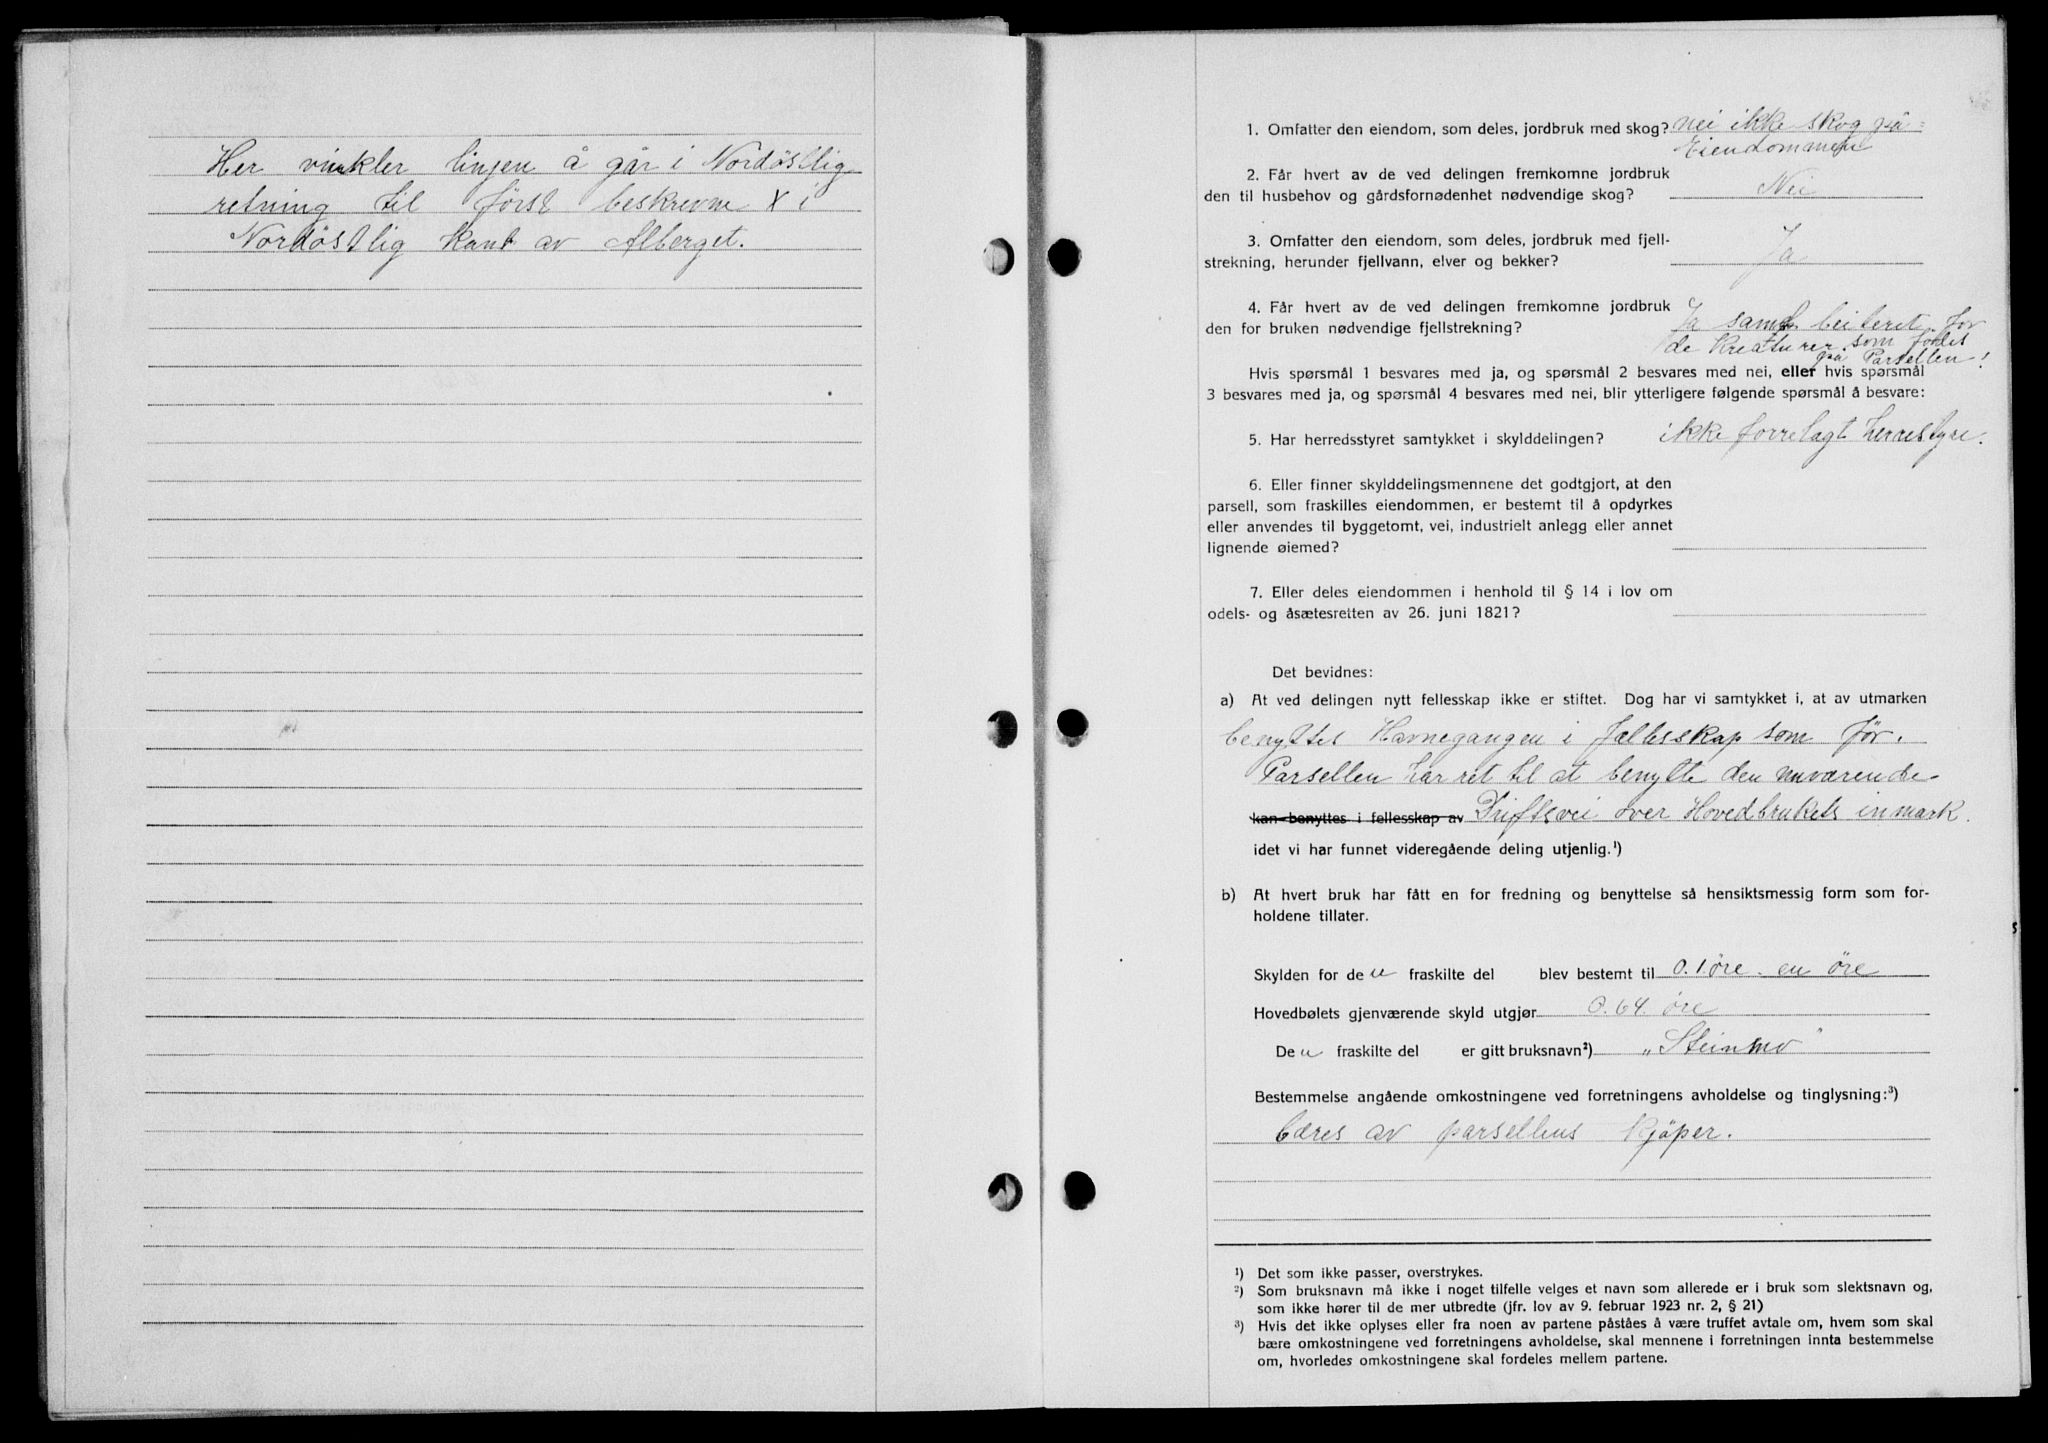 Her vinkler linjen å går i Nordöstlig
retning til först beskrevne X i
Nordöstlig Kant av Alberget.
1. Omfatter den eiendom, som deles, jordbruk med skog? nei ikke skog på
Eiendomanen
2. Får hvert av de ved delingen fremkomne jordbruk
den til husbehov og gårdsfornødenhet nødvendige skog? Nei
3. Omfatter den eiendom, som deles, jordbruk med fjell-
strekning, herunder fjellvann, elver og bekker? Ja
4. Får hvert av de ved delingen fremkomne jordbruk
den for bruken nødvendige fjellstrekning? Ja samt beiteret for
de Kreaturer som födes
på Parsellen!
Hvis spørsmål 1 besvares med ja, og spørsmål 2 besvares med nei, eller hvis spørsmål
3 besvares med ja, og spørsmål 4 besvares med nei, blir ytterligere følgende spørsmål å besvare:
5. Har herredsstyret samtykket i skylddelingen? ikke forrelagt herrestyre.
6. Eller finner skylddelingsmennene det godtgjort, at den
parsell, som fraskilles eiendommen, er bestemt til å opdyrkes
eller anvendes til byggetomt, vei, industrielt anlegg eller annet
lignende øiemed?
7. Eller deles eiendommen i henhold til § 14 i lov om
odels- og åsætesretten av 26. juni 1821?
Det bevidnes:
a) At ved delingen nytt fellesskap ikke er stiftet. Dog har vi samtykket i, at av utmarken
benyttes Havnegangen i fellesskap som för.
Parsellen har ret til at benytte den nuværende
kan benyttes i fellesskap av Driftsvei over Hovedbrukets inmark.
idet vi har funnet videregående deling utjenlig.¹)
b) At hvert bruk har fått en for fredning og benyttelse så hensiktsmessig form som for-
holdene tillater.
Skylden for den fraskilte del blev bestemt til 0.1 öre en öre
Hovedbølets gjenværende skyld utgjør 0.64 öre
Den fraskilte del er gitt bruksnavn²) „Steinmo"
Bestemmelse angående omkostningene ved forretningens avholdelse og tinglysning:³)
bæres av parsellens Kjöper.
¹) Det som ikke passer, overstrykes.
²) Som bruksnavn må ikke i noget tilfelle velges et navn som allerede er i bruk som slektsnavn og,
som ikke hører til de mer utbredte (jfr. lov av 9. februar 1923 nr. 2, § 21)
³) Hvis det ikke oplyses eller fra noen av partene påståes å være truffet avtale om, hvem som skal
bære omkostningene ved forretningens avholdelse, skal mennene i forretningen innta bestemmelse
om, hvorledes omkostningene skal fordeles mellem partene.